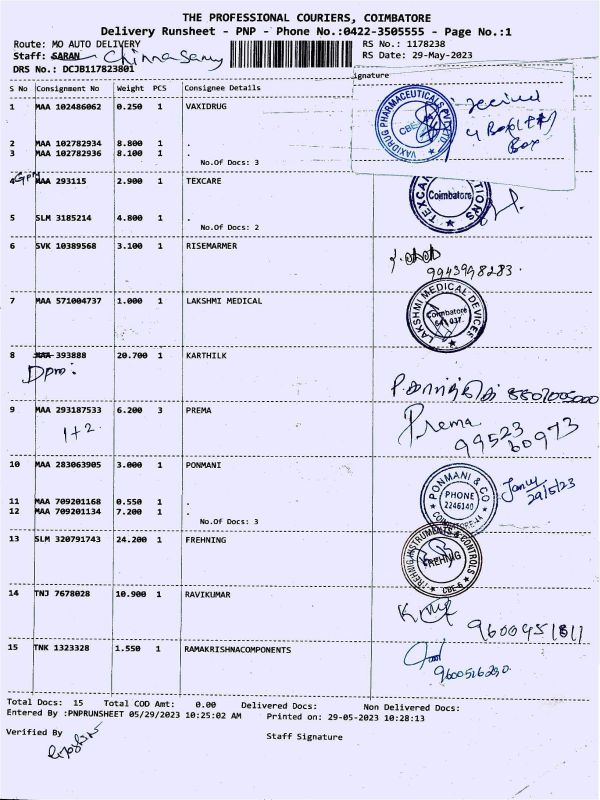 THE PROFESSIONAL COURIERS, COIMBATORE
Delivery Runsheet - PNP - Phone No.:0422-3505555 - Page No.:1
Route: MO AUTO DELIVERY RS No.: 1178238
Staff: SARAN Chinnasamy RS Date: 29-May-2023
DRS No.: DCJB117823801
S No Consignment No Weight PCS Consignee Details ignature
1 MAA 102486062 0.250 1 VAXIDRUG
VAXIDRUG PHARMACEUTICALS PVT LTD CBE
received
4 Box
Box
2 MAA 102782934 8.800 1 .
3 MAA 102782936 8.100 1 .
No.Of Docs: 3
4 MAA 293115 2.900 1 TEXCARE
Coimbatore
5 SLM 3185214 4.800 1 .
No.Of Docs: 2
6 SVK 10389568 3.100 1 RISEMARMER
9943998283.
7 MAA 571004737 1.000 1 LAKSHMI MEDICAL
LAKSHMI MEDICAL DEVICES Coimbatore 641 037.
8 MAA 393888 20.700 1 KARTHILK
9 MAA 293187533 6.200 3 PREMA
1+2. Prema
99523
60973
10 MAA 283063905 3.000 1 PONMANI
PONMANI & CO PHONE 2246140 COIMBATORE-44
29/5/23
11 MAA 709201168 0.550 1 .
12 MAA 709201134 7.200 1 .
No.Of Docs: 3
13 SLM 320791743 24.200 1 FREHNING
INSTRUMENTS & CONTROLS CBE-6
14 TNJ 7678028 10.900 1 RAVIKUMAR
9600451811
15 TNK 1323328 1.550 1 RAMAKRISHNACOMPONENTS
Total Docs: 15 Total COD Amt: 0.00 Delivered Docs: Non Delivered Docs:
Entered By :PNPRUNSHEET 05/29/2023 10:25:02 AM Printed on: 29-05-2023 10:28:13
Verified By Staff Signature